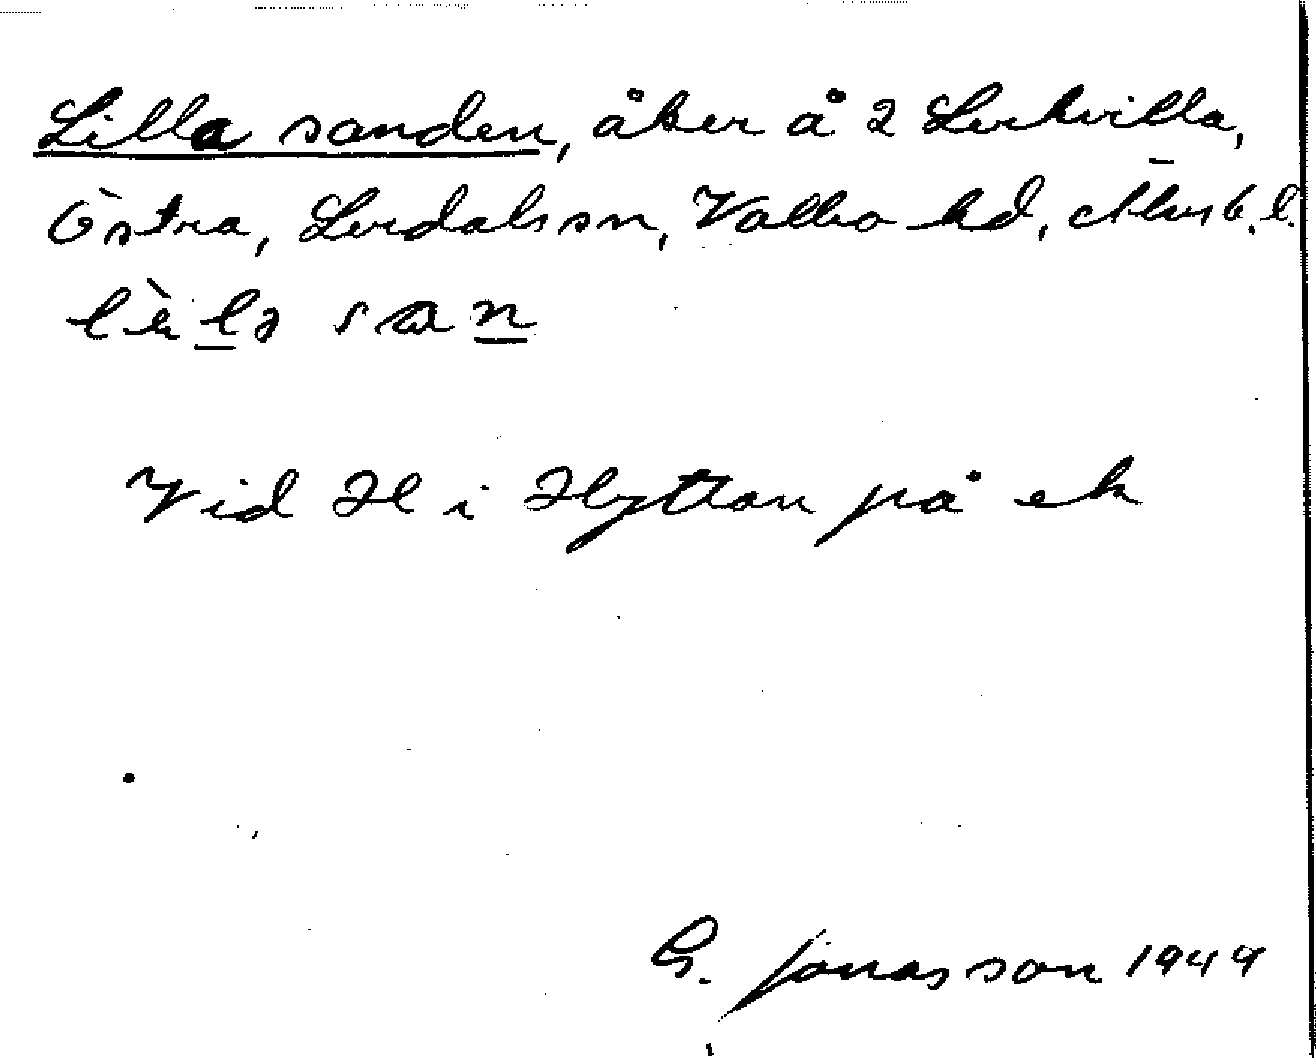 Lilla sanden, åker å 2 Lerkvilla,
Östra, Lerdals sn, Valbo hd, Älvsb. l.
san
Vid H i Hyttan på ek
G. Jonasson 1949